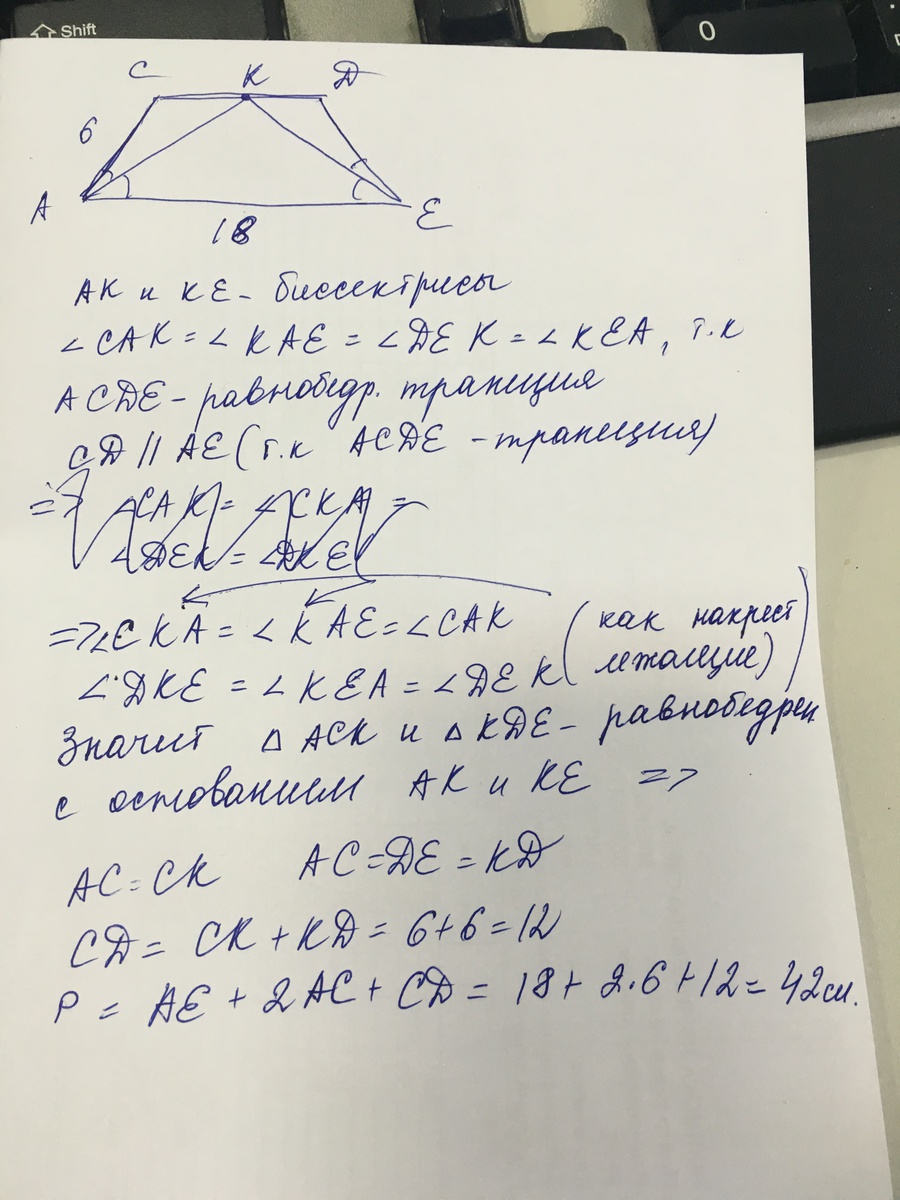 Shift
0
C K D
6
A
E
18
AK и KE - биссектрисы
∠CAK = ∠KAE = ∠DEK = ∠KEA, т.к
ACDE - равнобедр. трапеция
CD || AE (т.к ACDE - трапеция)
=> ∠CAK = ∠CKA =
∠DEK = ∠DKE
=> ∠CKA = ∠KAE = ∠CAK (как накрест
∠DKE = ∠KEA = ∠DEK лежащие)
Значит △ ACK и △ KDE - равнобедрен
с основанием AK и KE =>
AC = CK AC = DE = KD
CD = CK + KD = 6 + 6 = 12
P = AE + 2AC + CD = 18 + 2·6 + 12 = 42 см.